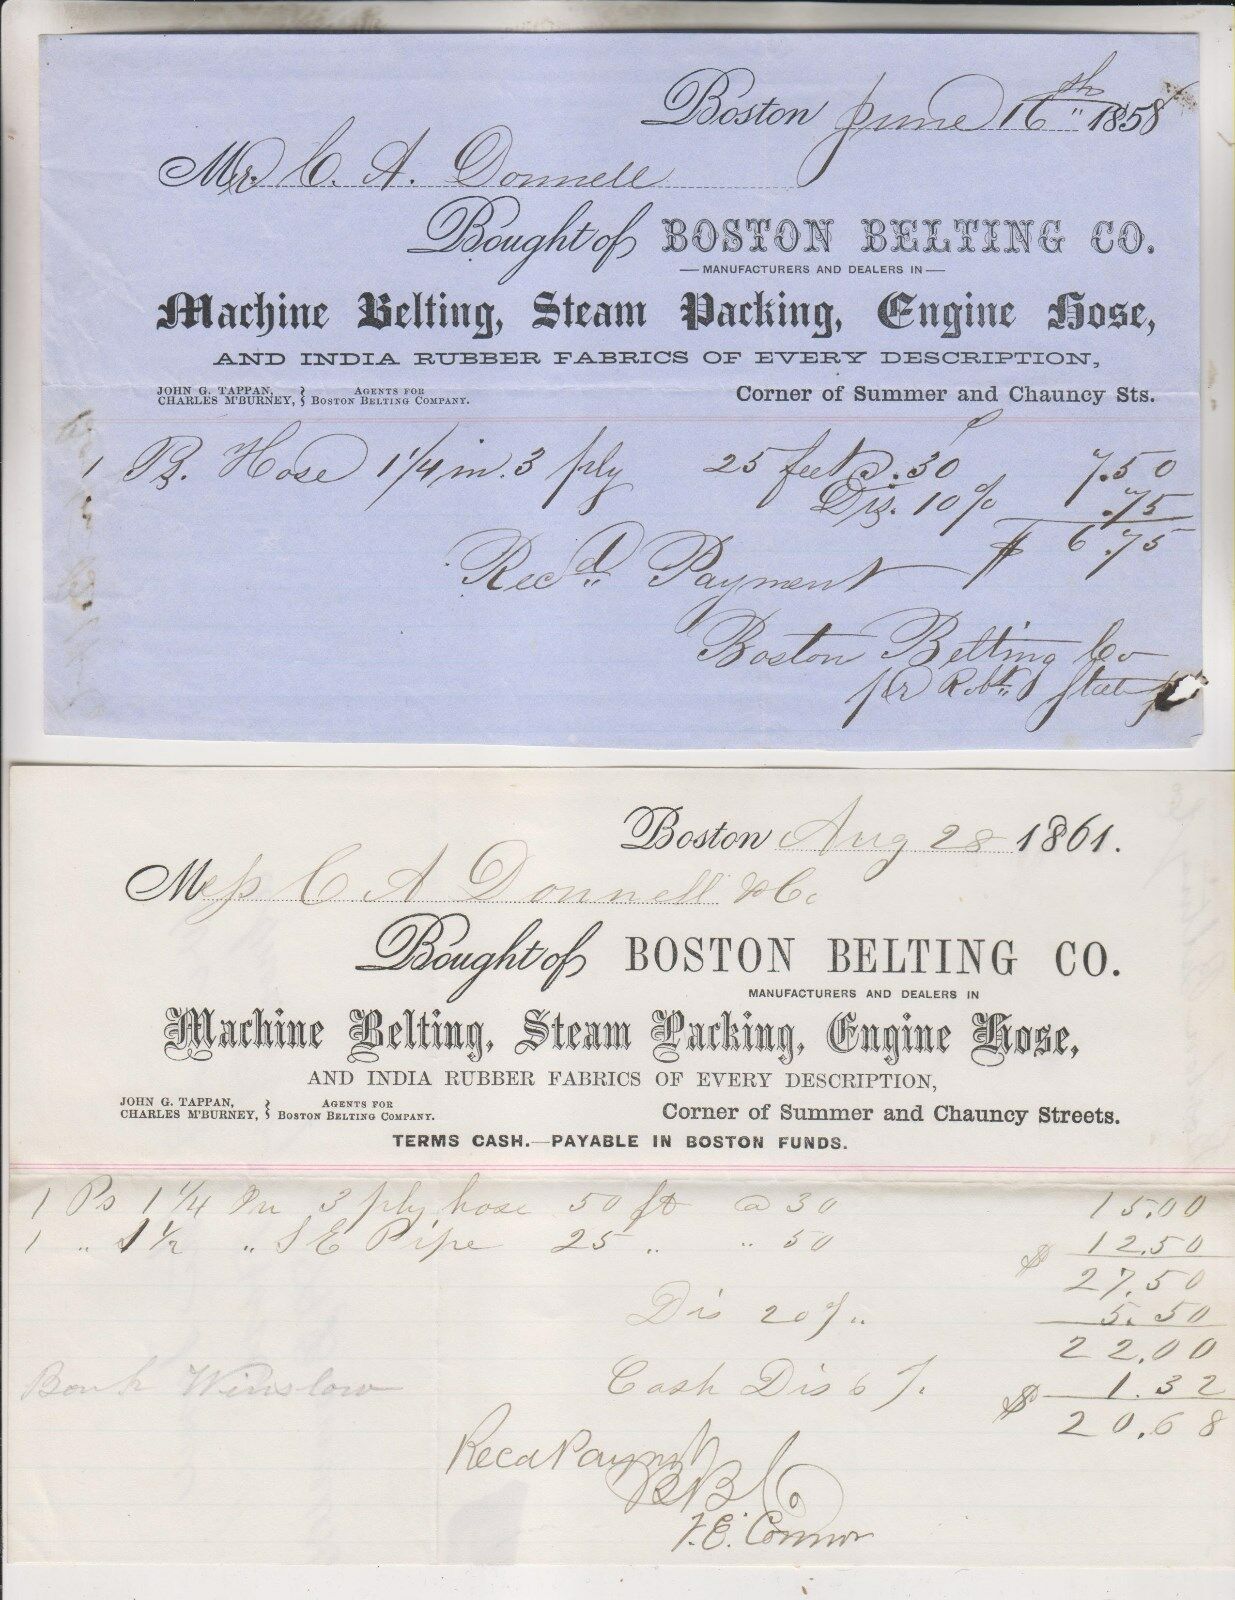 Boston June 16th 1858
Mr. C. A. Donnell
Bought of BOSTON BELTING CO.
MANUFACTURERS AND DEALERS IN
Machine Belting, Steam Packing, Engine Hose,
AND INDIA RUBBER FABRICS OF EVERY DESCRIPTION,
JOHN G. TAPPAN, CHARLES M'BURNEY, } AGENTS FOR BOSTON BELTING COMPANY.
Corner of Summer and Chauncy Sts.
1 Ps. Hose 1 1/4 in. 3 ply 25 feet @ .30 7.50
Dis. 10% .75
Recd Payment $ 6.75
Boston Belting Co
pr Robt.
Boston Aug 28 1861.
Mess C A Donnell & Co
Bought of BOSTON BELTING CO.
MANUFACTURERS AND DEALERS IN
Machine Belting, Steam Packing, Engine Hose,
AND INDIA RUBBER FABRICS OF EVERY DESCRIPTION,
JOHN G. TAPPAN, CHARLES M'BURNEY, } AGENTS FOR BOSTON BELTING COMPANY.
Corner of Summer and Chauncy Streets.
TERMS CASH.—PAYABLE IN BOSTON FUNDS.
1 Ps 1 1/4 In 3 ply hose 50 ft @ 30 15.00
1 " 1 1/2 " S E Pipe 25 " " 50 $ 12.50
27.50
Dis 20 % 5.50
22.00
Winslow Cash Dis 6 % $ 1.32
20.68
Recd Paymt
B B Co
F. E. Connor